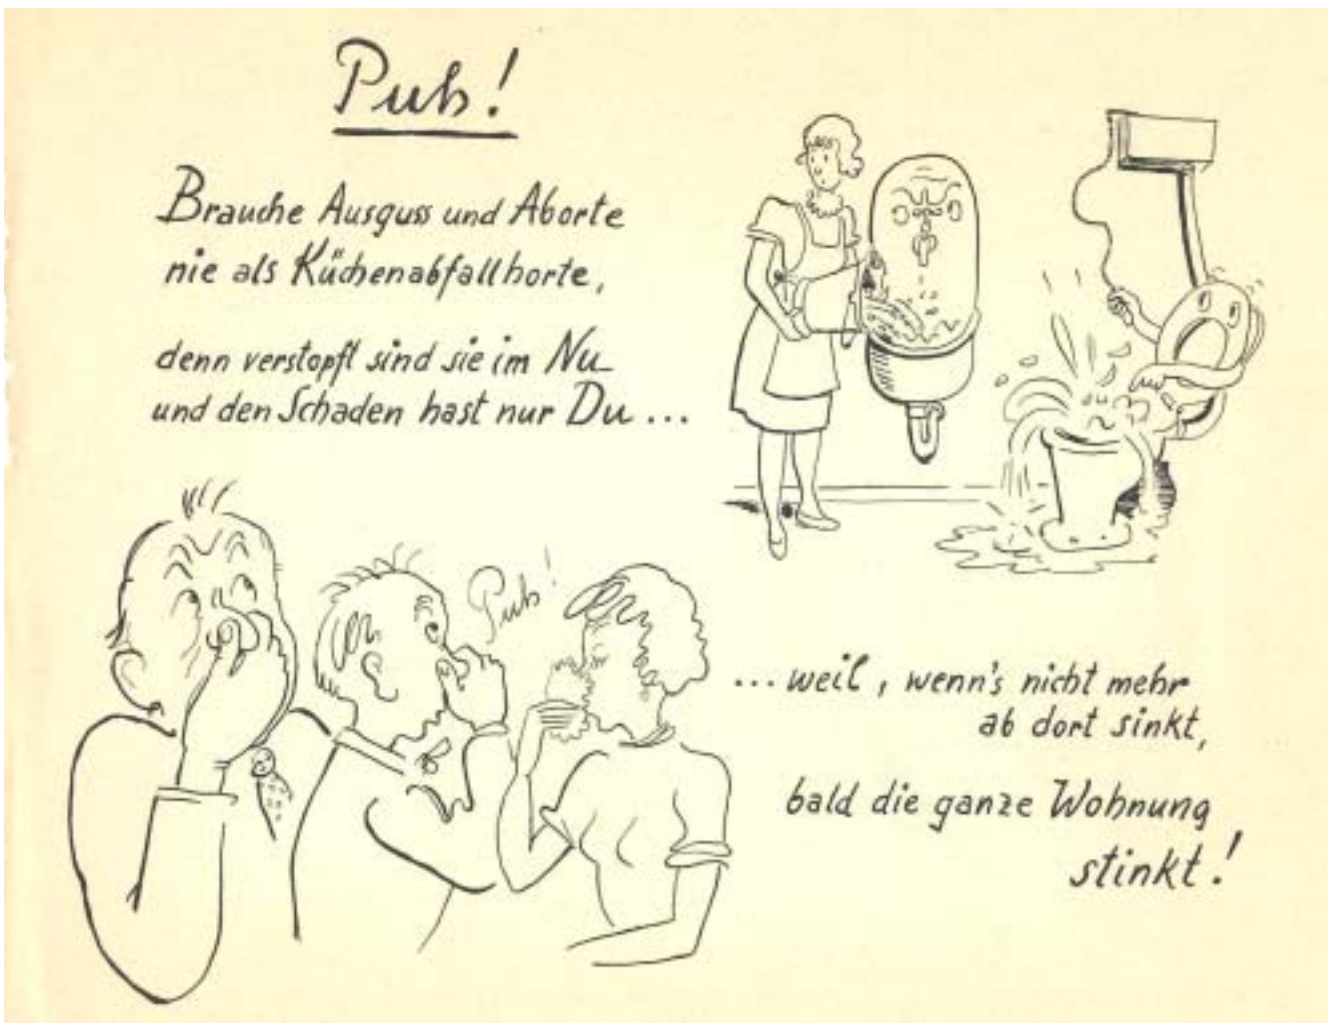 Puh!
Brauche Ausguss und Aborte
nie als Küchenabfallhorte,
denn verstopft sind sie im Nu
und den Schaden hast nur Du...
Puh!
...weil, wenn's nicht mehr
ab dort sinkt,
bald die ganze Wohnung
stinkt!